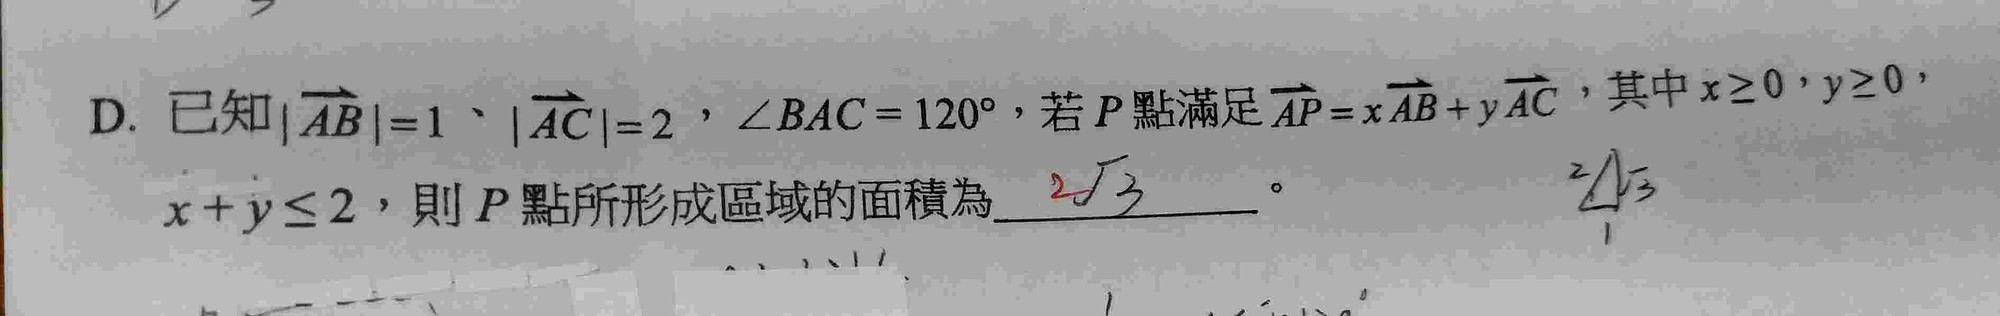 D. 已知|AB|=1、|AC|=2，∠BAC=120°，若 P 點滿足 AP=xAB+yAC，其中 x≥0，y≥0，
x+y≤2，則 P 點所形成區域的面積為 2√3 。
2 √3
1